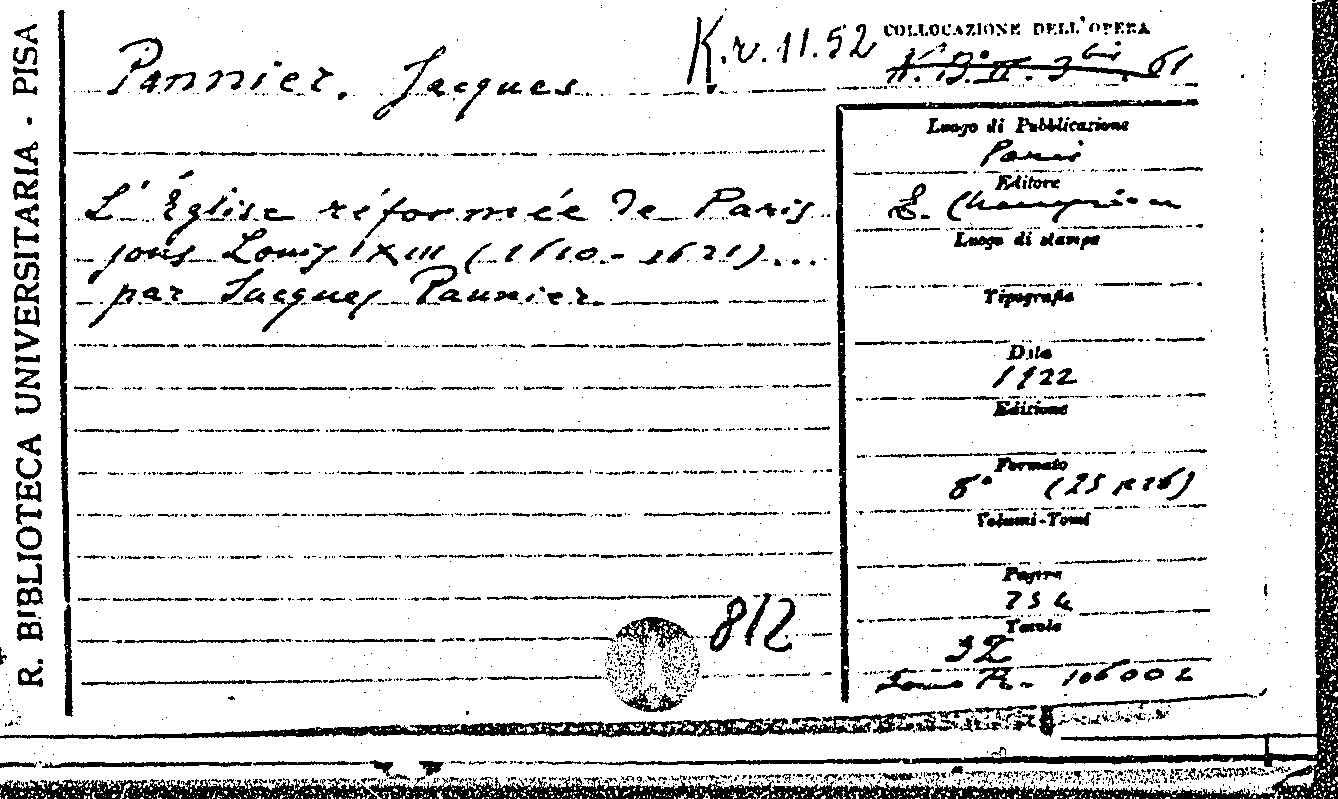 R. BIBLIOTECA UNIVERSITARIA - PISA
Pannier, Jacques
K.r.11.52
COLLOCAZIONE DELL'OPERA
61
L'Église réformée de Paris
sous Louis XIII (1610-1621)...
par Jacques Pannier.
Luogo di Pubblicazione
Paris
Editore
E. Champion
Luogo di stampa
Tipografia
Data
1922
Edizione
Formato
8°
Volumi-Tomi
Pagine
Tavole
812
106002